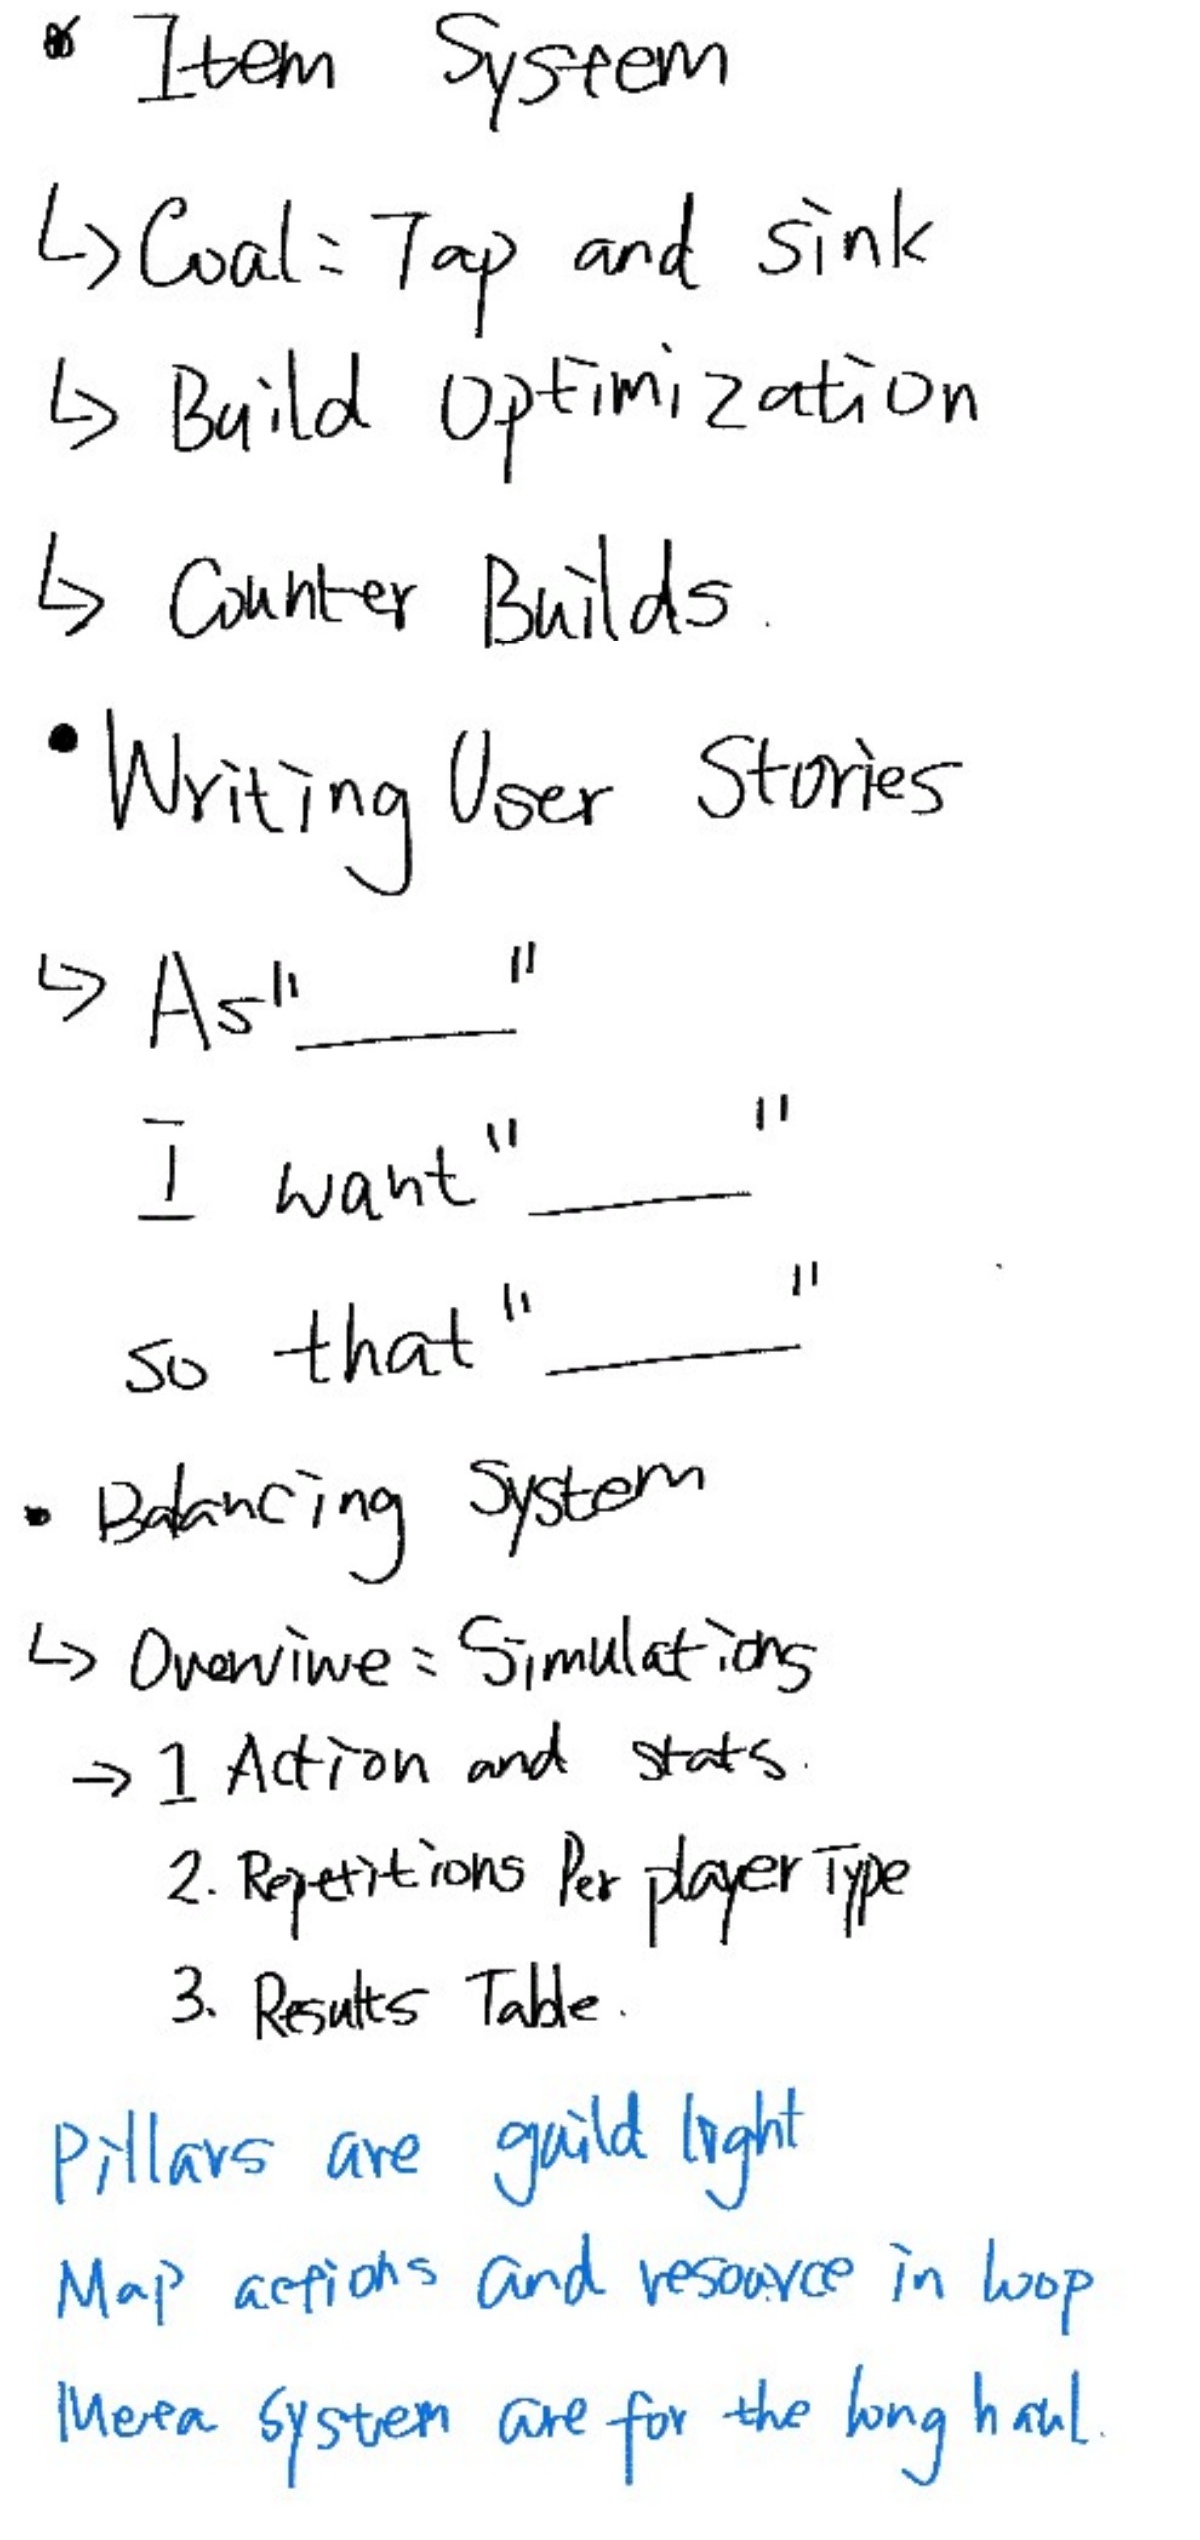 • Item System
↳ Coal = Tap and sink
↳ Build Optimization
↳ Counter Builds.
• Writing User Stories
↳ As "____"
I want "____"
so that "____"
• Balancing System
↳ Overviwe = Simulations
→ 1 Action and stats.
2. Repetitions Per player Type
3. Results Table.
Pillars are guild light
Map actions and resource in loop
Meta system are for the long haul.